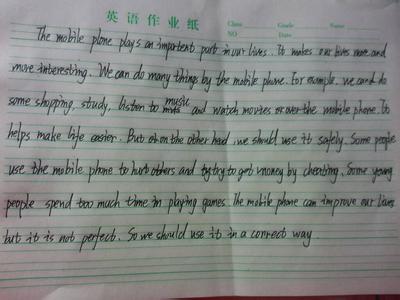 英语作业纸
Class Grade Name
NO Date
The mobile phone plays an important part in our lives. It makes our lives more and
more interesting. We can do many things by the mobile phone. For example, we can do
some shopping, study, listen to music and watch movies over the mobile phone. It
helps make life easier. But on the other hand, we should use it safely. Some people
use the mobile phone to hurt others and try to get money by cheating. Some young
people spend too much time in playing games. The mobile phone can improve our lives
but it is not perfect. So we should use it in a correct way